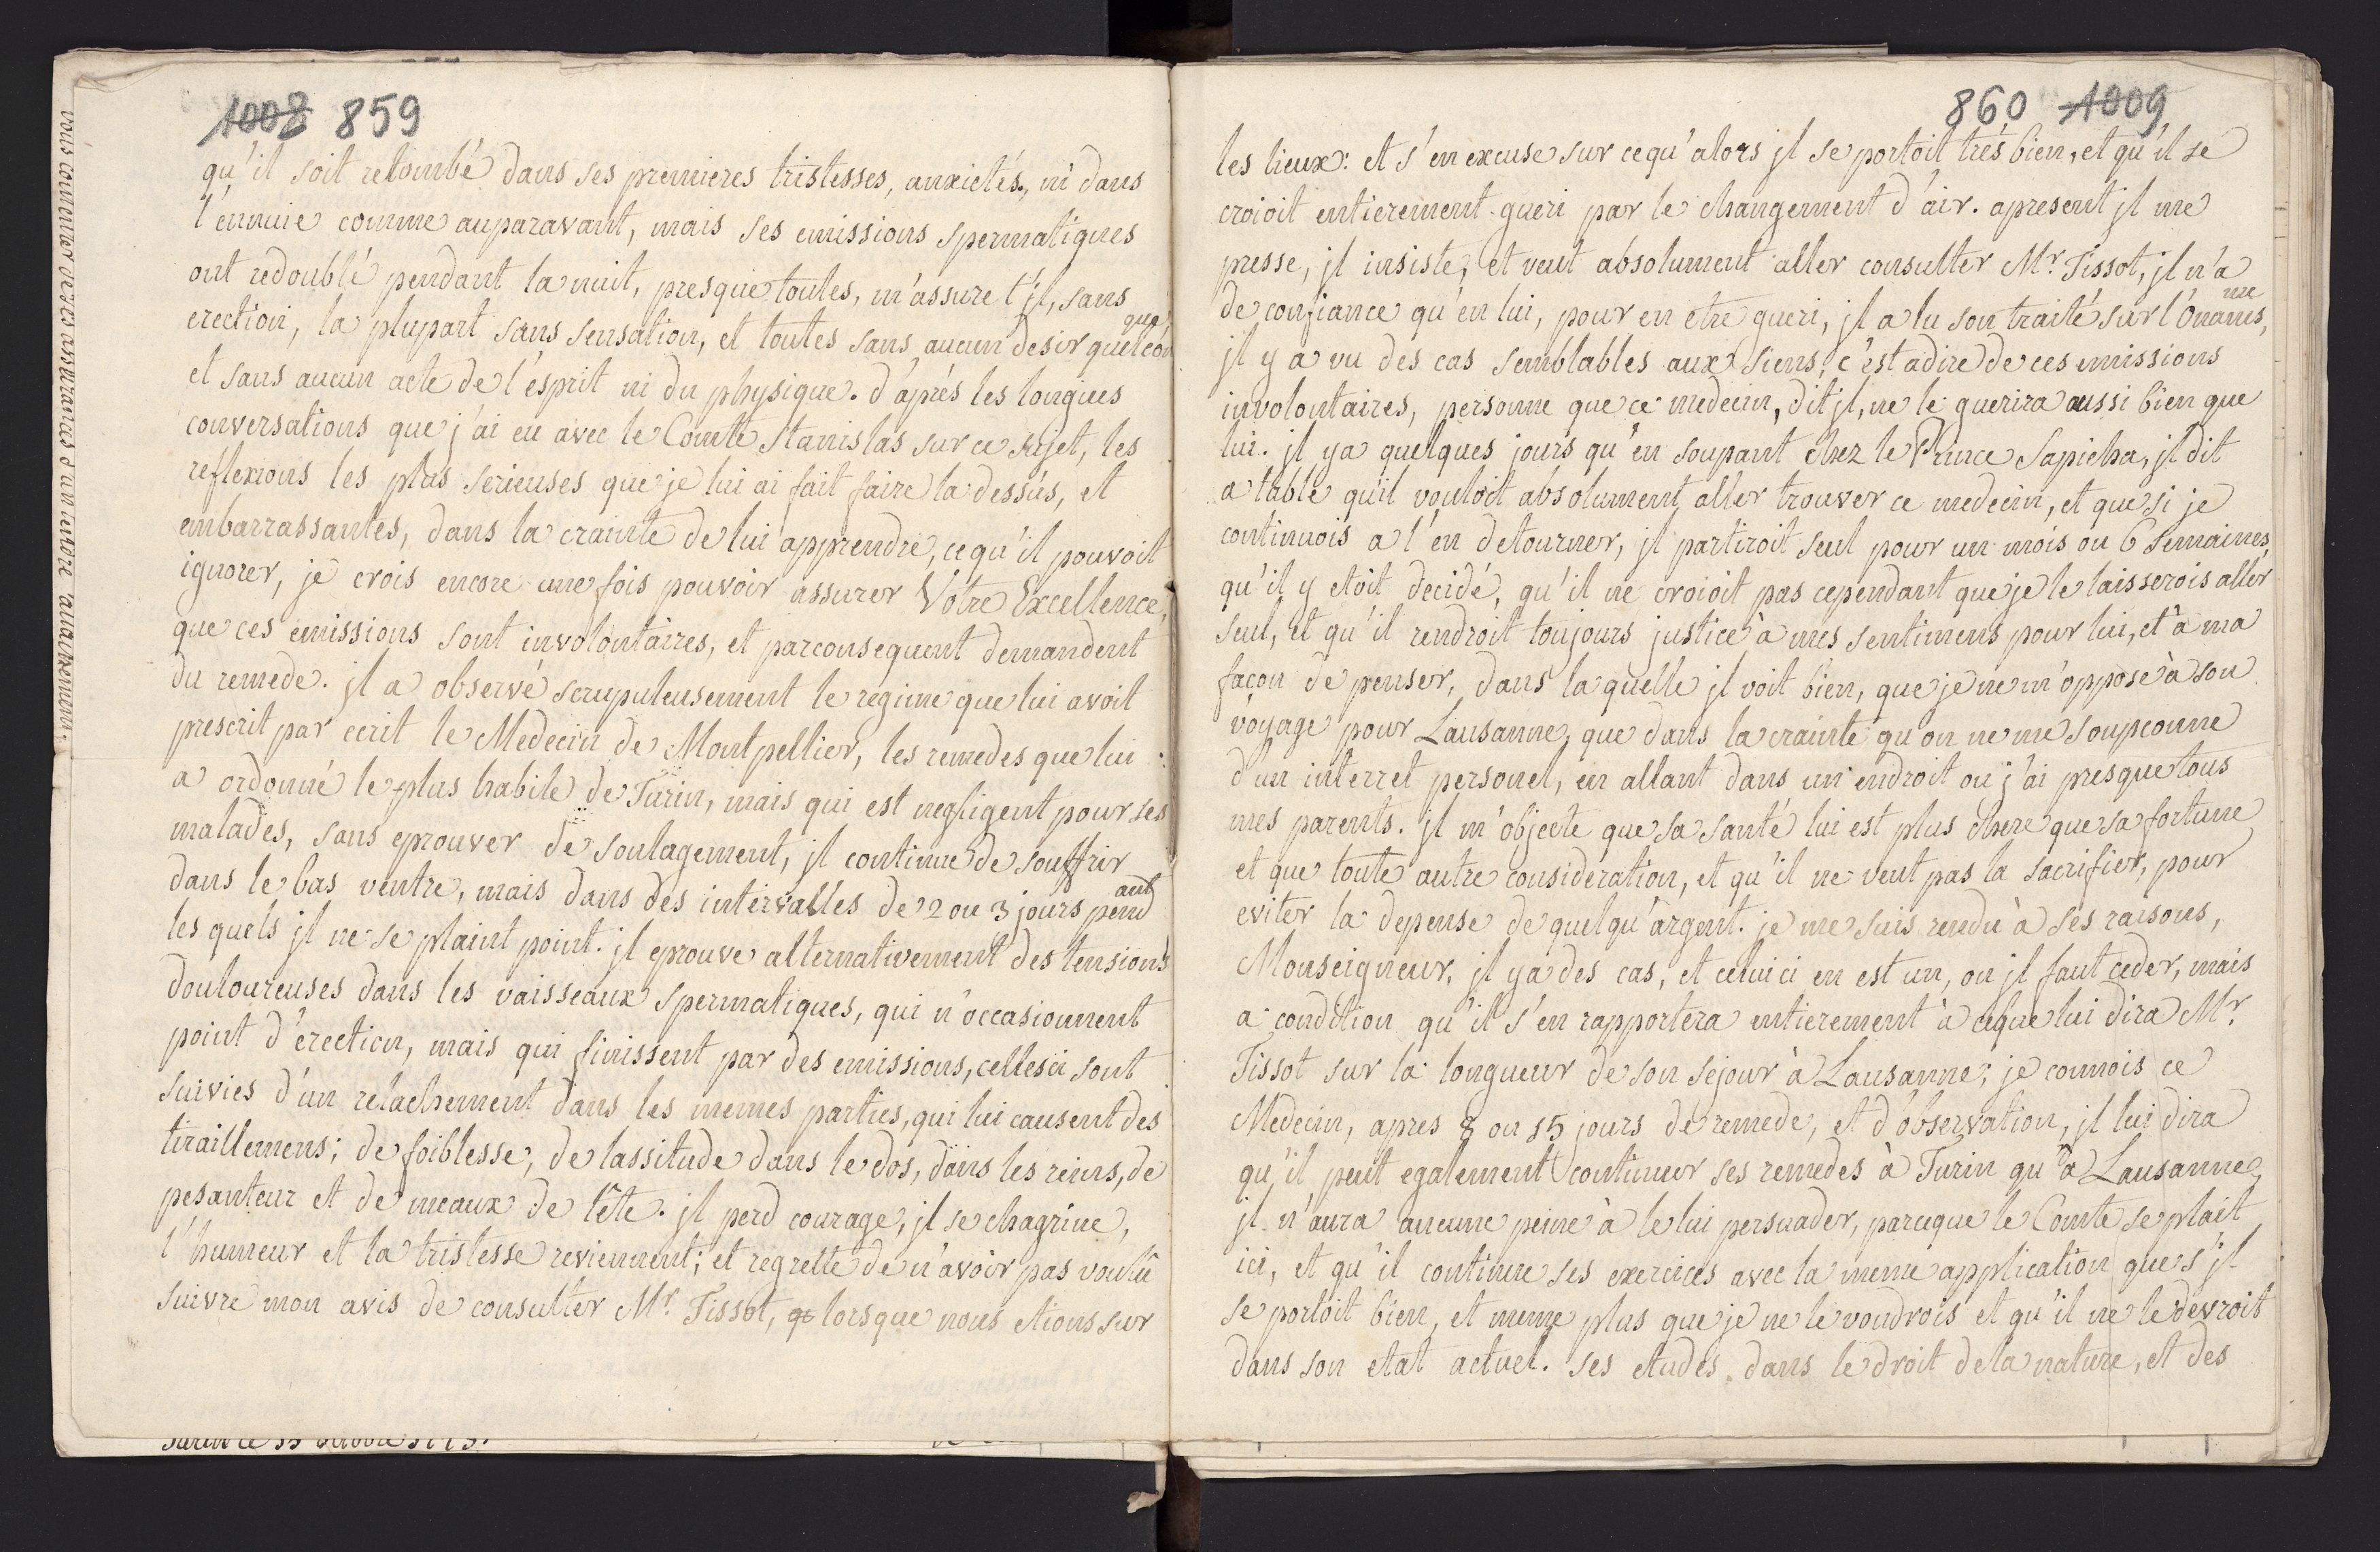 1008 859
qu'il soit retombé dans ses premieres tristesses, anxietés, ni dans
l'ennuie comme auparavant, mais ses emissions spermatiques
ont redoublé pendant la nuit, presque toutes, m'assure t'jl, sans
erection, la plupart sans sensation, et toutes sans aucun desir quelconque
et sans aucun acte de l'esprit ni du physique. d'aprés les longues
conversations que j'ai eu avec le Comte Stanislas sur ce sujet, les
réflexions les plus serieuses que je lui ai fait faire la dessús, et
embarrassantes, dans la crainte de lui apprendre, ce qu'il pouvoit
ignorer, je crois encore une fois pouvoir assurer Votre Excellence,
que ces emissions sont involontaires, et parconsequent demandent
du remede. jl a observé scrupuleusement le regime que lui avoit
prescrit par ecrit le Medecin de Montpellier, les remedes que lui
a ordonné le plus habile de Turin, mais qui est negligent pour ses
malades, sans eprouver de soulagement, jl continue de souffrir
dans le bas ventre, mais dans des intervalles de 2 ou 3 jours pendant
les quels jl ne se plaint point. jl eprouve alternativement des tensions
douloureuses dans les vaisseaux spermatiques, qui n'occasionnent
point d'érection, mais qui finissent par des emissions, celles ci sont
suivies d'un relachement dans les memes parties, qui lui causent des
tiraillemens; de foiblesse, de lassitude dans le dos, dans les reins, de
pesanteur et de meaux de tête. jl perd courage, jl se chagrine,
l'humeur et la tristesse reviennent; et regrette de n'avoir pas voulu
suivre mon avis de consulter Mr. Tissot, lorsque nous etions sur
860 1009
les lieux: et s'en excuse sur ce qu'alors jl se portoit trés bien, et qu'il se
croioit entierement gueri par le changement d'air. apresent jl me
presse, jl insiste, et veut absolument aller consulter Mr. Tissot, jl n'a
de confiance qu'en lui, pour en etre gueri, jl a lu son traité sur l'Onanisme,
jl y a vu des cas semblables aux siens, c'est adire de ces emissions
involontaires, personne que ce medecin, dit jl, ne le guerira aussi bien que
lui. jl ya quelques jours qu'en soupant chez le Prince Sapieha, jl dit
a table qu'il vouloit absolument aller trouver ce medecin, et que si je
continuois a l'en detourner, jl partiroit seul pour un mois ou 6 semaines,
qu'il y etoit decidé, qu'il ne croioit pas cependant que je le laisserois aller
seul, et qu'il rendroit toujours justice à mes sentimens pour lui, et à ma
façon de penser, dans la quelle jl voit bien, que je ne m'oppose à son
voyage pour Lausanne, que dans la crainte qu'on ne me soupconne
d'un interret personel, en allant dans un endroit ou j'ai presque tous
mes parents. jl m'objecte que sa santé lui est plus chere que sa fortune
et que toute autre consideration, et qu'il ne veut pas la sacrifier, pour
eviter la depense de quelqu'argent. je me suis rendu à ses raisons,
Monseigneur, jl ya des cas, et celui ci en est un, ou jl faut ceder, mais
a condition qu'il s'en rapportera entierement à ceque lui dira Mr.
Tissot sur la longueur de son sejour à Lausanne; je connois ce
Medecin, apres 8 ou 15 jours de remede, et d'observation, jl lui dira
qu'il peut egalement continuer ses remedes à Turin qu'a Lausanne,
jl n'aura aucune peine à le lui persuader, parceque le Comte se plait
ici, et qu'il continue ses exercices avec la meme application que s'jl
se portoit bien, et meme plus que je ne le voudrois et qu'il ne le devroit
dans son etat actuel. ses etudes dans le droit de la nature, et des